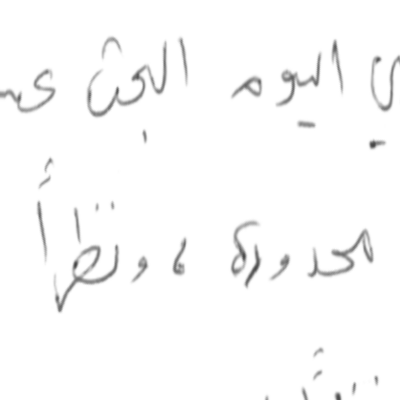 اليوم البحث عن
محدودة ، ونظراً